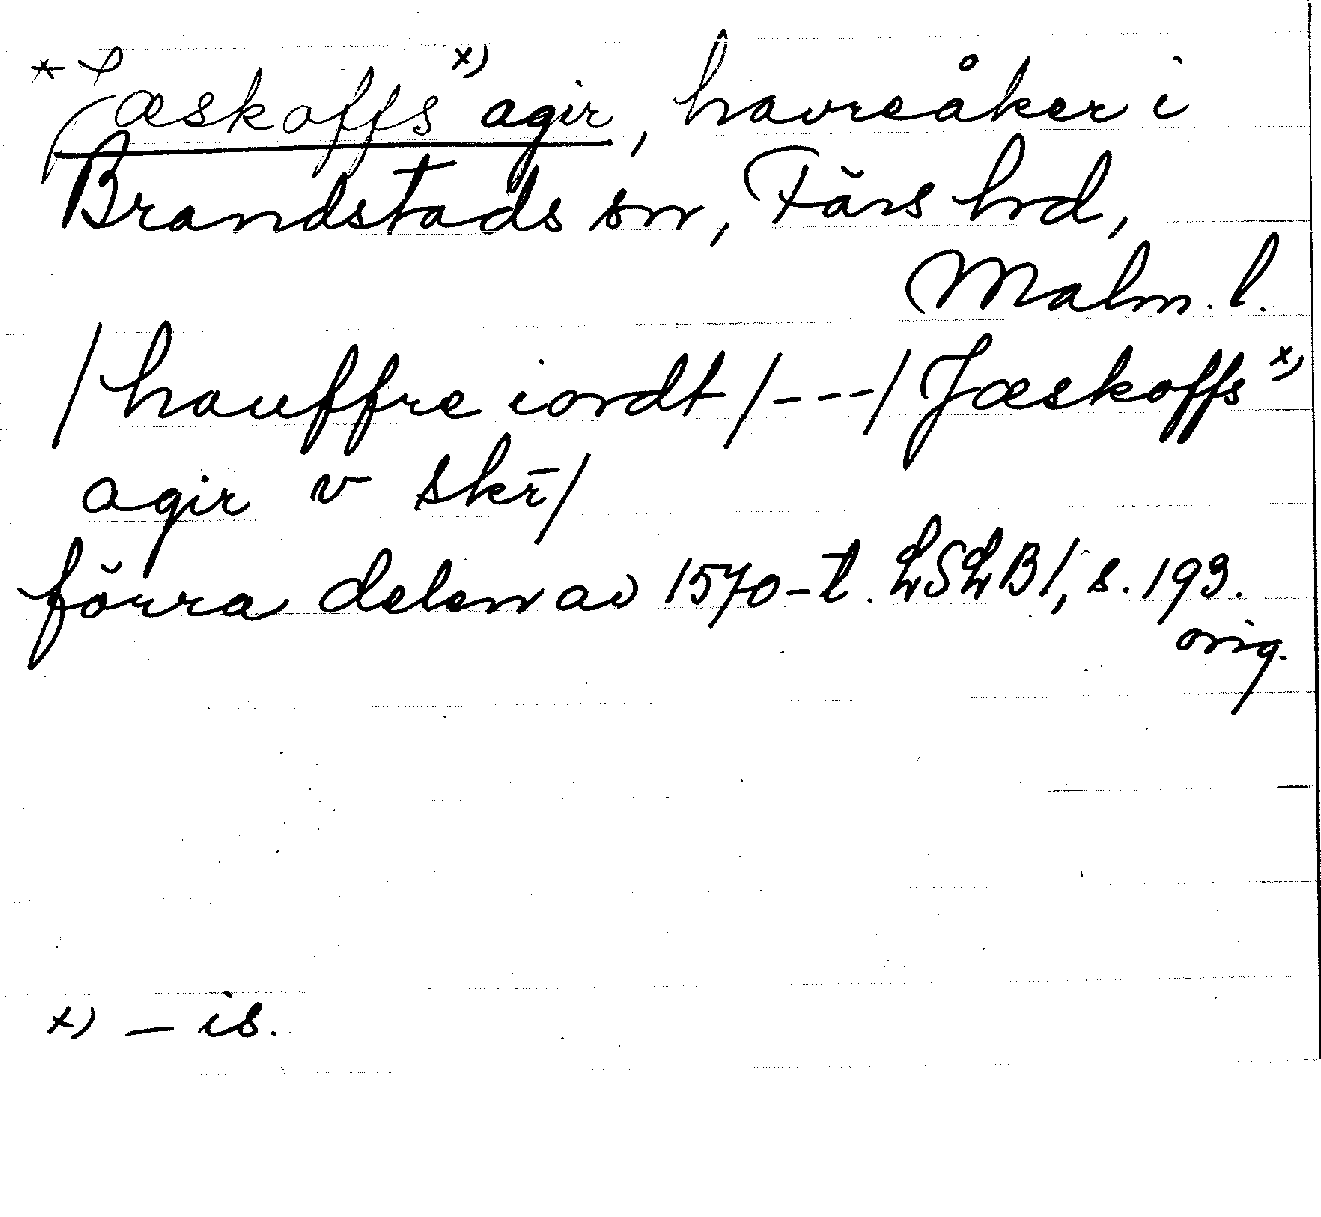 * Jæskoffs x) agir, havreåker i
Brandstads sn, Färs hd,
Malm. l.
/hauffre iordt/---/Jæskoffs x)
agir v skr̄/
förra delen av 1570-t. LSLB1, s. 193.
orig.
x) – is.